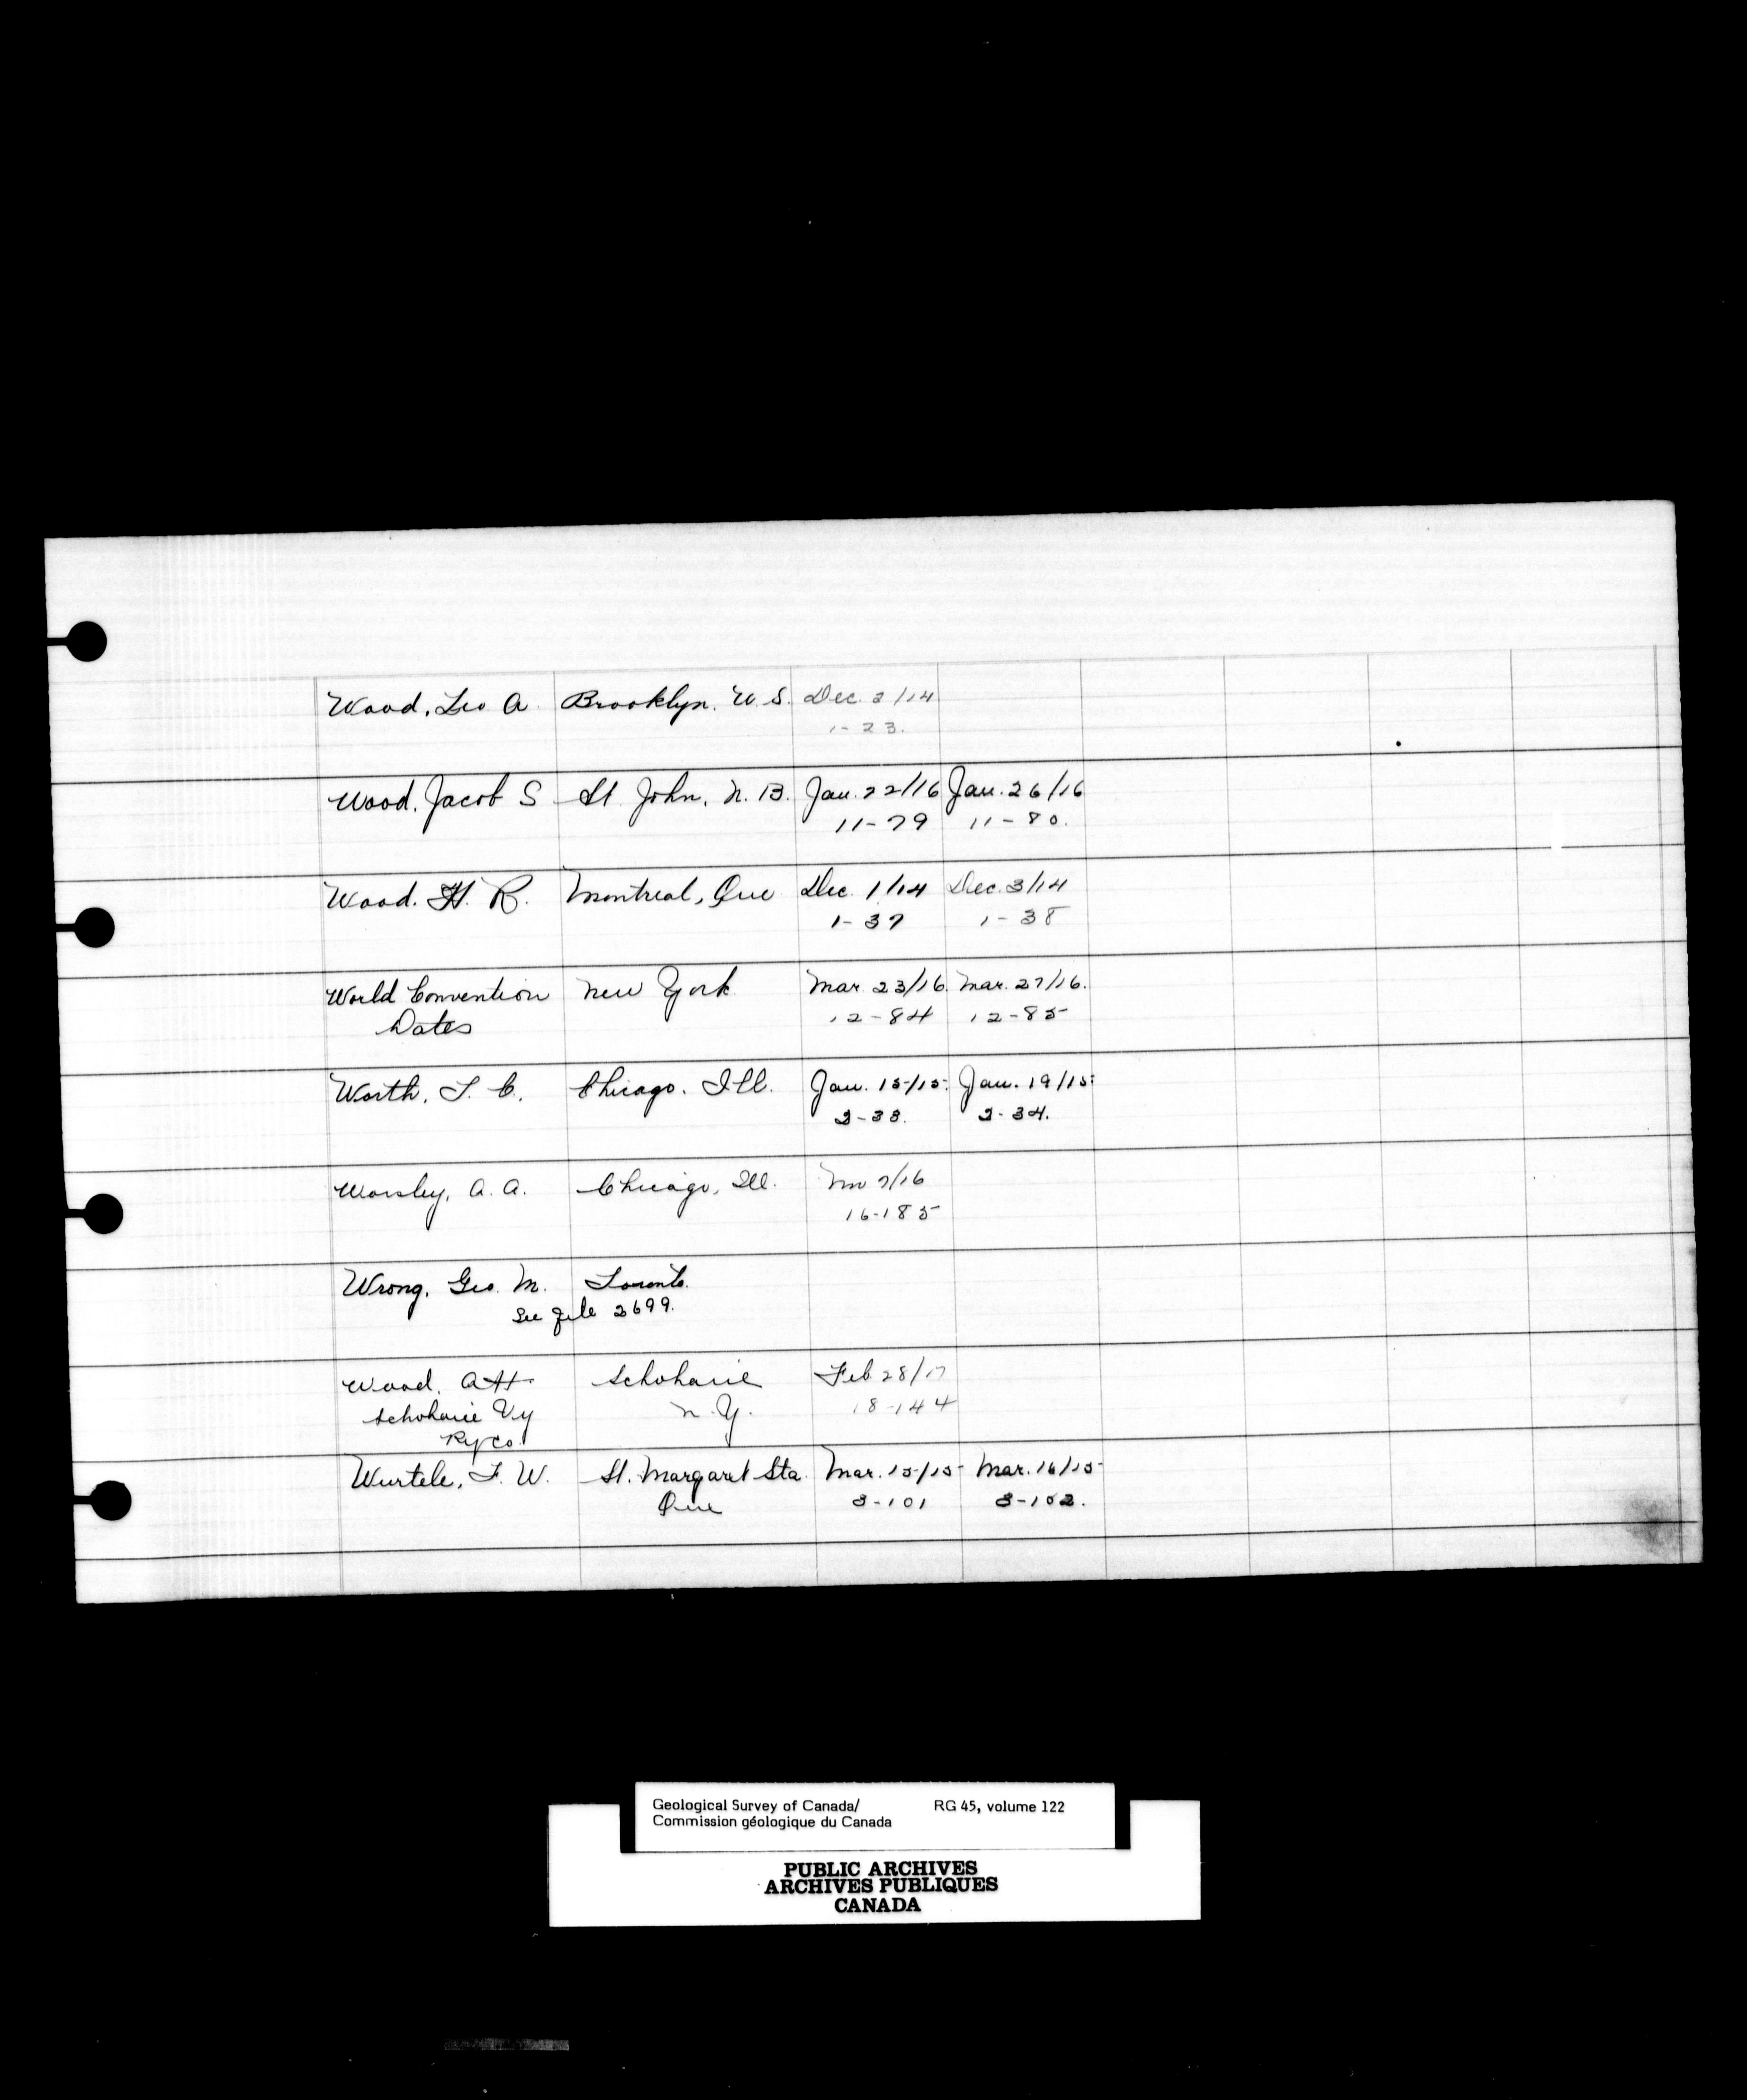 Wood, Leo A. Brooklyn, N.S. Dec. 2/14
1-23.
Wood, Jacob S St. John, N.B. Jan. 22/16 Jan. 26/16
11-79 11-80.
Wood. H. R. Montreal, Que Dec. 1/14 Dec. 3/14
1-37 1-38
World Convention New York Mar. 23/16. Mar. 27/16.
Dates 12-84 12-85
Worth, T. C. Chicago. Ill. Jan. 15/15. Jan. 19/15.
2-33. 2-34.
Worsley, A. A. Chicago, Ill. Nov 7/16
16-185
Wrong, Geo. M. Toronto.
See file 2699.
Wood, A H Schoharie Feb 28/17
Schoharie Vy N.Y. 18-144
Ry Co.
Wurtele, F. W. St. Margaret Sta. Mar. 15/15 Mar. 16/15
Que 3-101 3-102.
Geological Survey of Canada/ RG 45, volume 122
Commission géologique du Canada
PUBLIC ARCHIVES
ARCHIVES PUBLIQUES
CANADA